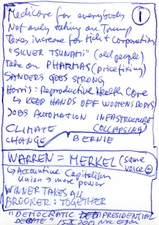 1
Medicare for everybody
Not only taking on Trump
Taxes increase for rich + corporations
"SILVER TSUNAMI" (old people)
Take on PHARMAS (price fixing)
SANDERS GOES STRONG
Harris: Reproductive Health Care
→ KEEP HANDS OFF WOMEN BODYS
JOBS AUTOMATION INFRASTRUCTURE
COLLAPSING
CLIMATE
CHANGE BERNIE
WARREN = MERKEL (same
voice)
→ Accountive Capitalism
Union → more power
WINNER TAKES ALL
BROOKER: TOGETHER
"DEMOCRATIC PRESIDENTIAL
DEBATE"